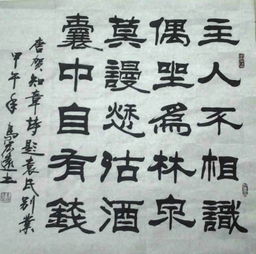 主人不相識
偶坐爲林泉
莫謾愁沽酒
囊中自有錢
唐賀知章詩題袁氏別業
甲午年馬